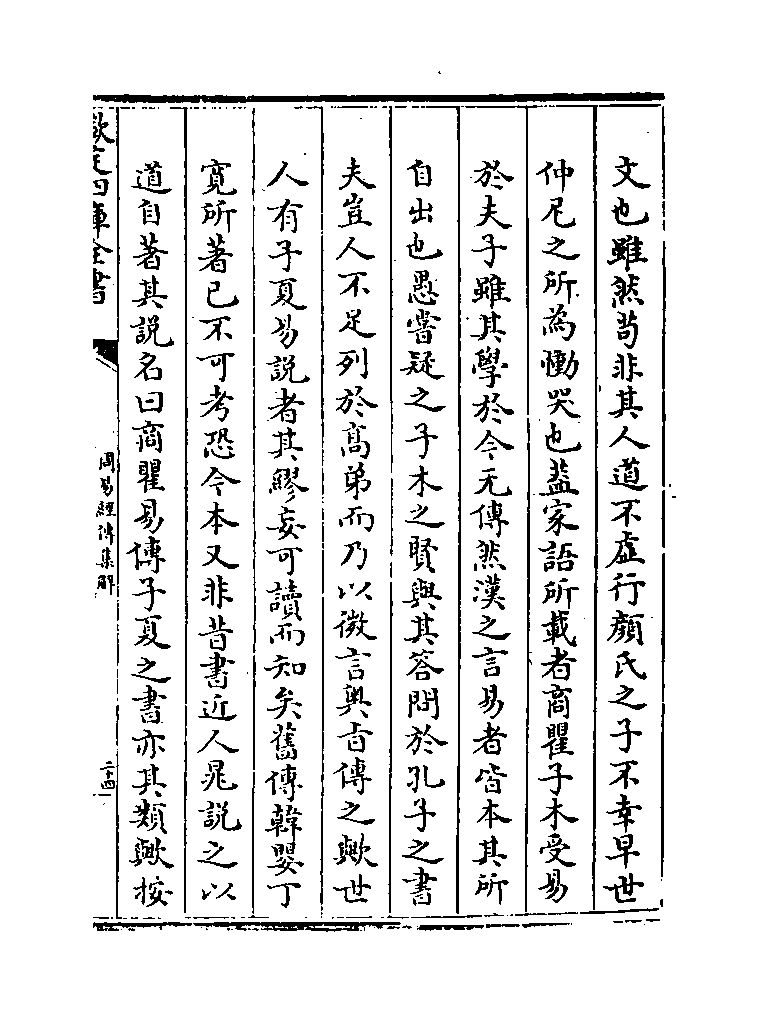 文也雖然苟非其人道不虛行顔氏之子不幸早世
仲尼之所為慟哭也蓋家語所載者商瞿子木受易
於夫子雖其學於今无傳然漢之言易者皆本其所
自出也愚嘗疑之子木之賢與其答問於孔子之書
夫豈人不足列於高弟而乃以微言奧旨傳之歟世
人有子夏易說者其繆妄可讀而知矣舊傳韓嬰丁
寛所著已不可考恐今本又非昔書近人晁說之以
道自著其說名曰商瞿易傳子夏之書亦其類歟按
欽定四庫全書
周易經傳集解
二十四